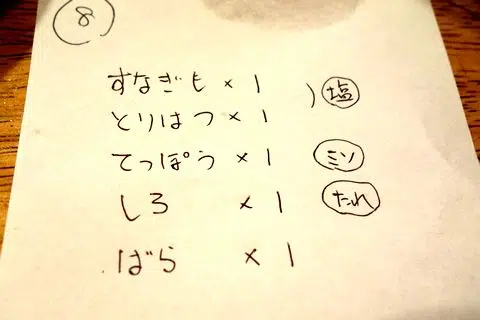 8
すなぎも × 1 ) 塩
とりはつ × 1
てっぽう × 1 ミソ
しろ × 1 たれ
ばら × 1